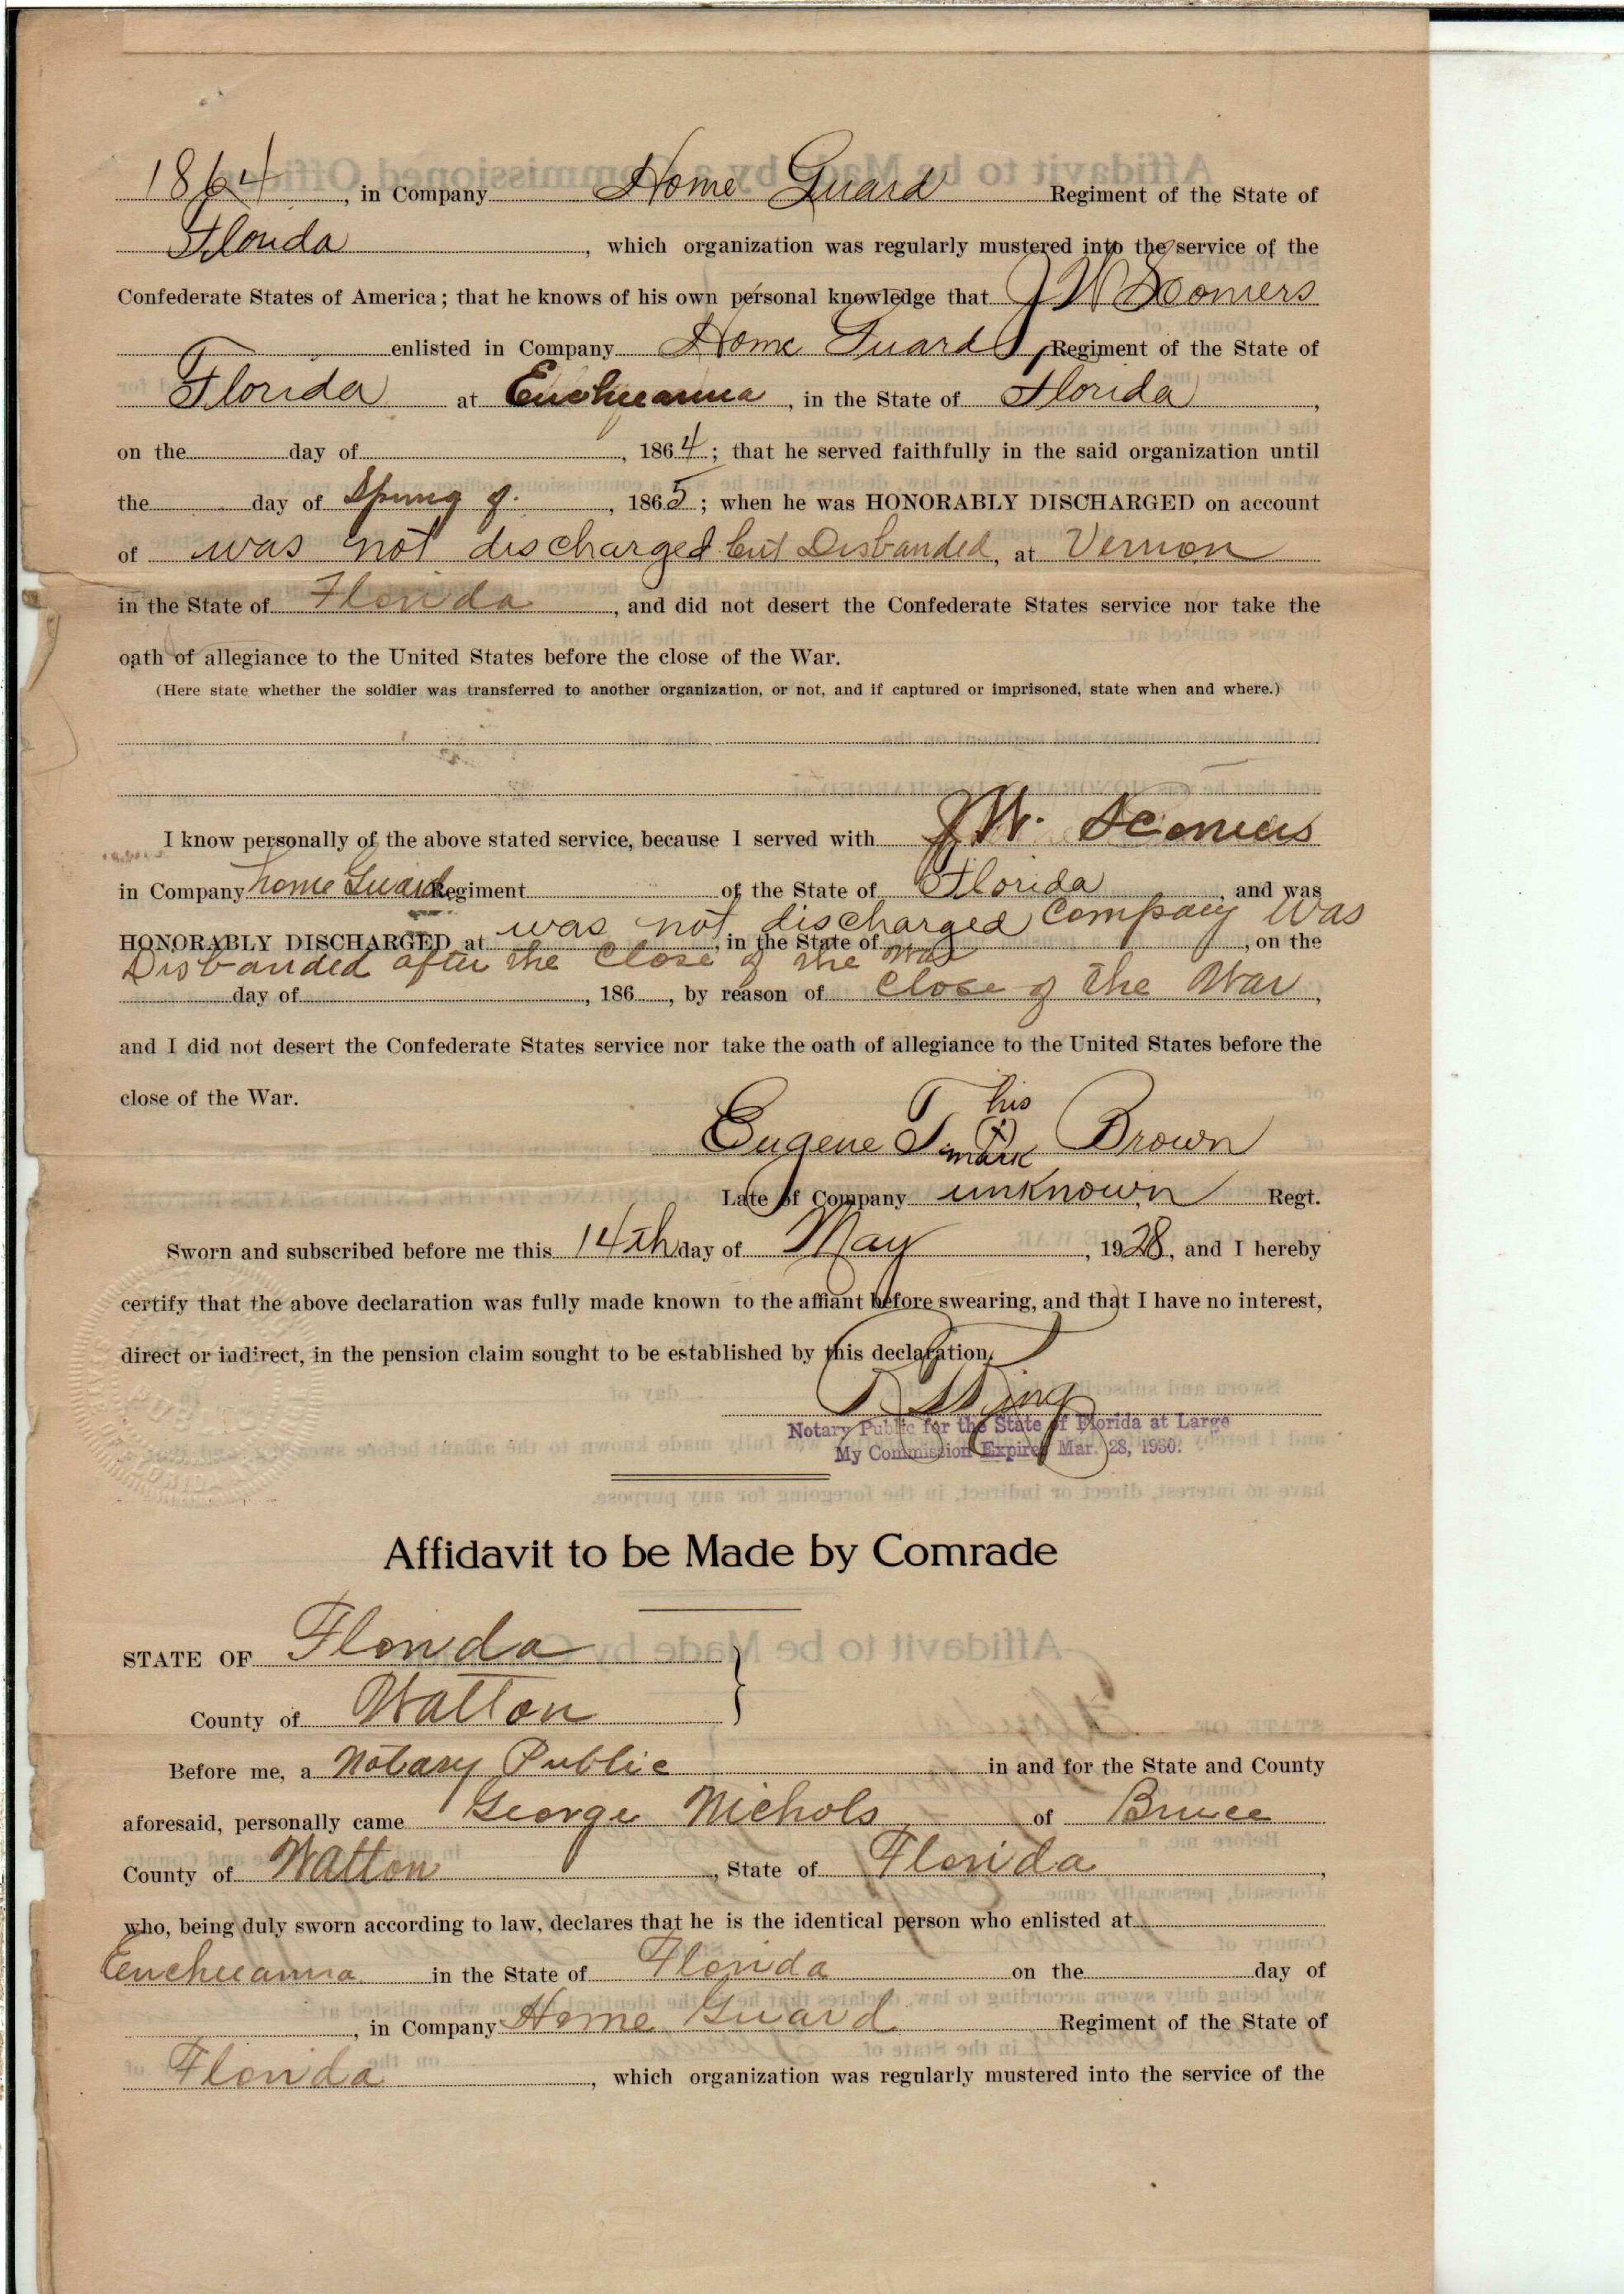 1864, in Company Home Guard Regiment of the State of
Florida, which organization was regularly mustered into the service of the
Confederate States of America; that he knows of his own personal knowledge that J W Scomers
enlisted in Company Home Guard, Regiment of the State of
Florida at Eucheeanna, in the State of Florida,
on the day of , 1864; that he served faithfully in the said organization until
the day of Spring of, 1865; when he was HONORABLY DISCHARGED on account
of was not discharged but Disbanded, at Vernon
in the State of Florida, and did not desert the Confederate States service nor take the
oath of allegiance to the United States before the close of the War.
(Here state whether the soldier was transferred to another organization, or not, and if captured or imprisoned, state when and where.)
I know personally of the above stated service, because I served with J W. Scomers
in Company home Guard Regiment of the State of Florida, and was
was not discharged Company Was
HONORABLY DISCHARGED at , in the State of , on the
Disbanded after the Close of the War
day of , 186 , by reason of Close of the War,
and I did not desert the Confederate States service nor take the oath of allegiance to the United States before the
close of the War.
his
Eugene T. X Brown
mark
Late of Company unknown Regt.
Sworn and subscribed before me this 14th day of May, 1928, and I hereby
certify that the above declaration was fully made known to the affiant before swearing, and that I have no interest,
direct or indirect, in the pension claim sought to be established by this declaration.
Notary Public for the State of Florida at Large
My Commission Expires Mar. 28, 1930.
Affidavit to be Made by Comrade
STATE OF Florida
County of Walton
Before me, a Notary Public in and for the State and County
aforesaid, personally came George Nichols of Bruce
County of Walton, State of Florida,
who, being duly sworn according to law, declares that he is the identical person who enlisted at
Eucheeanna in the State of Florida on the day of
, in Company Home Guard Regiment of the State of
Florida, which organization was regularly mustered into the service of the